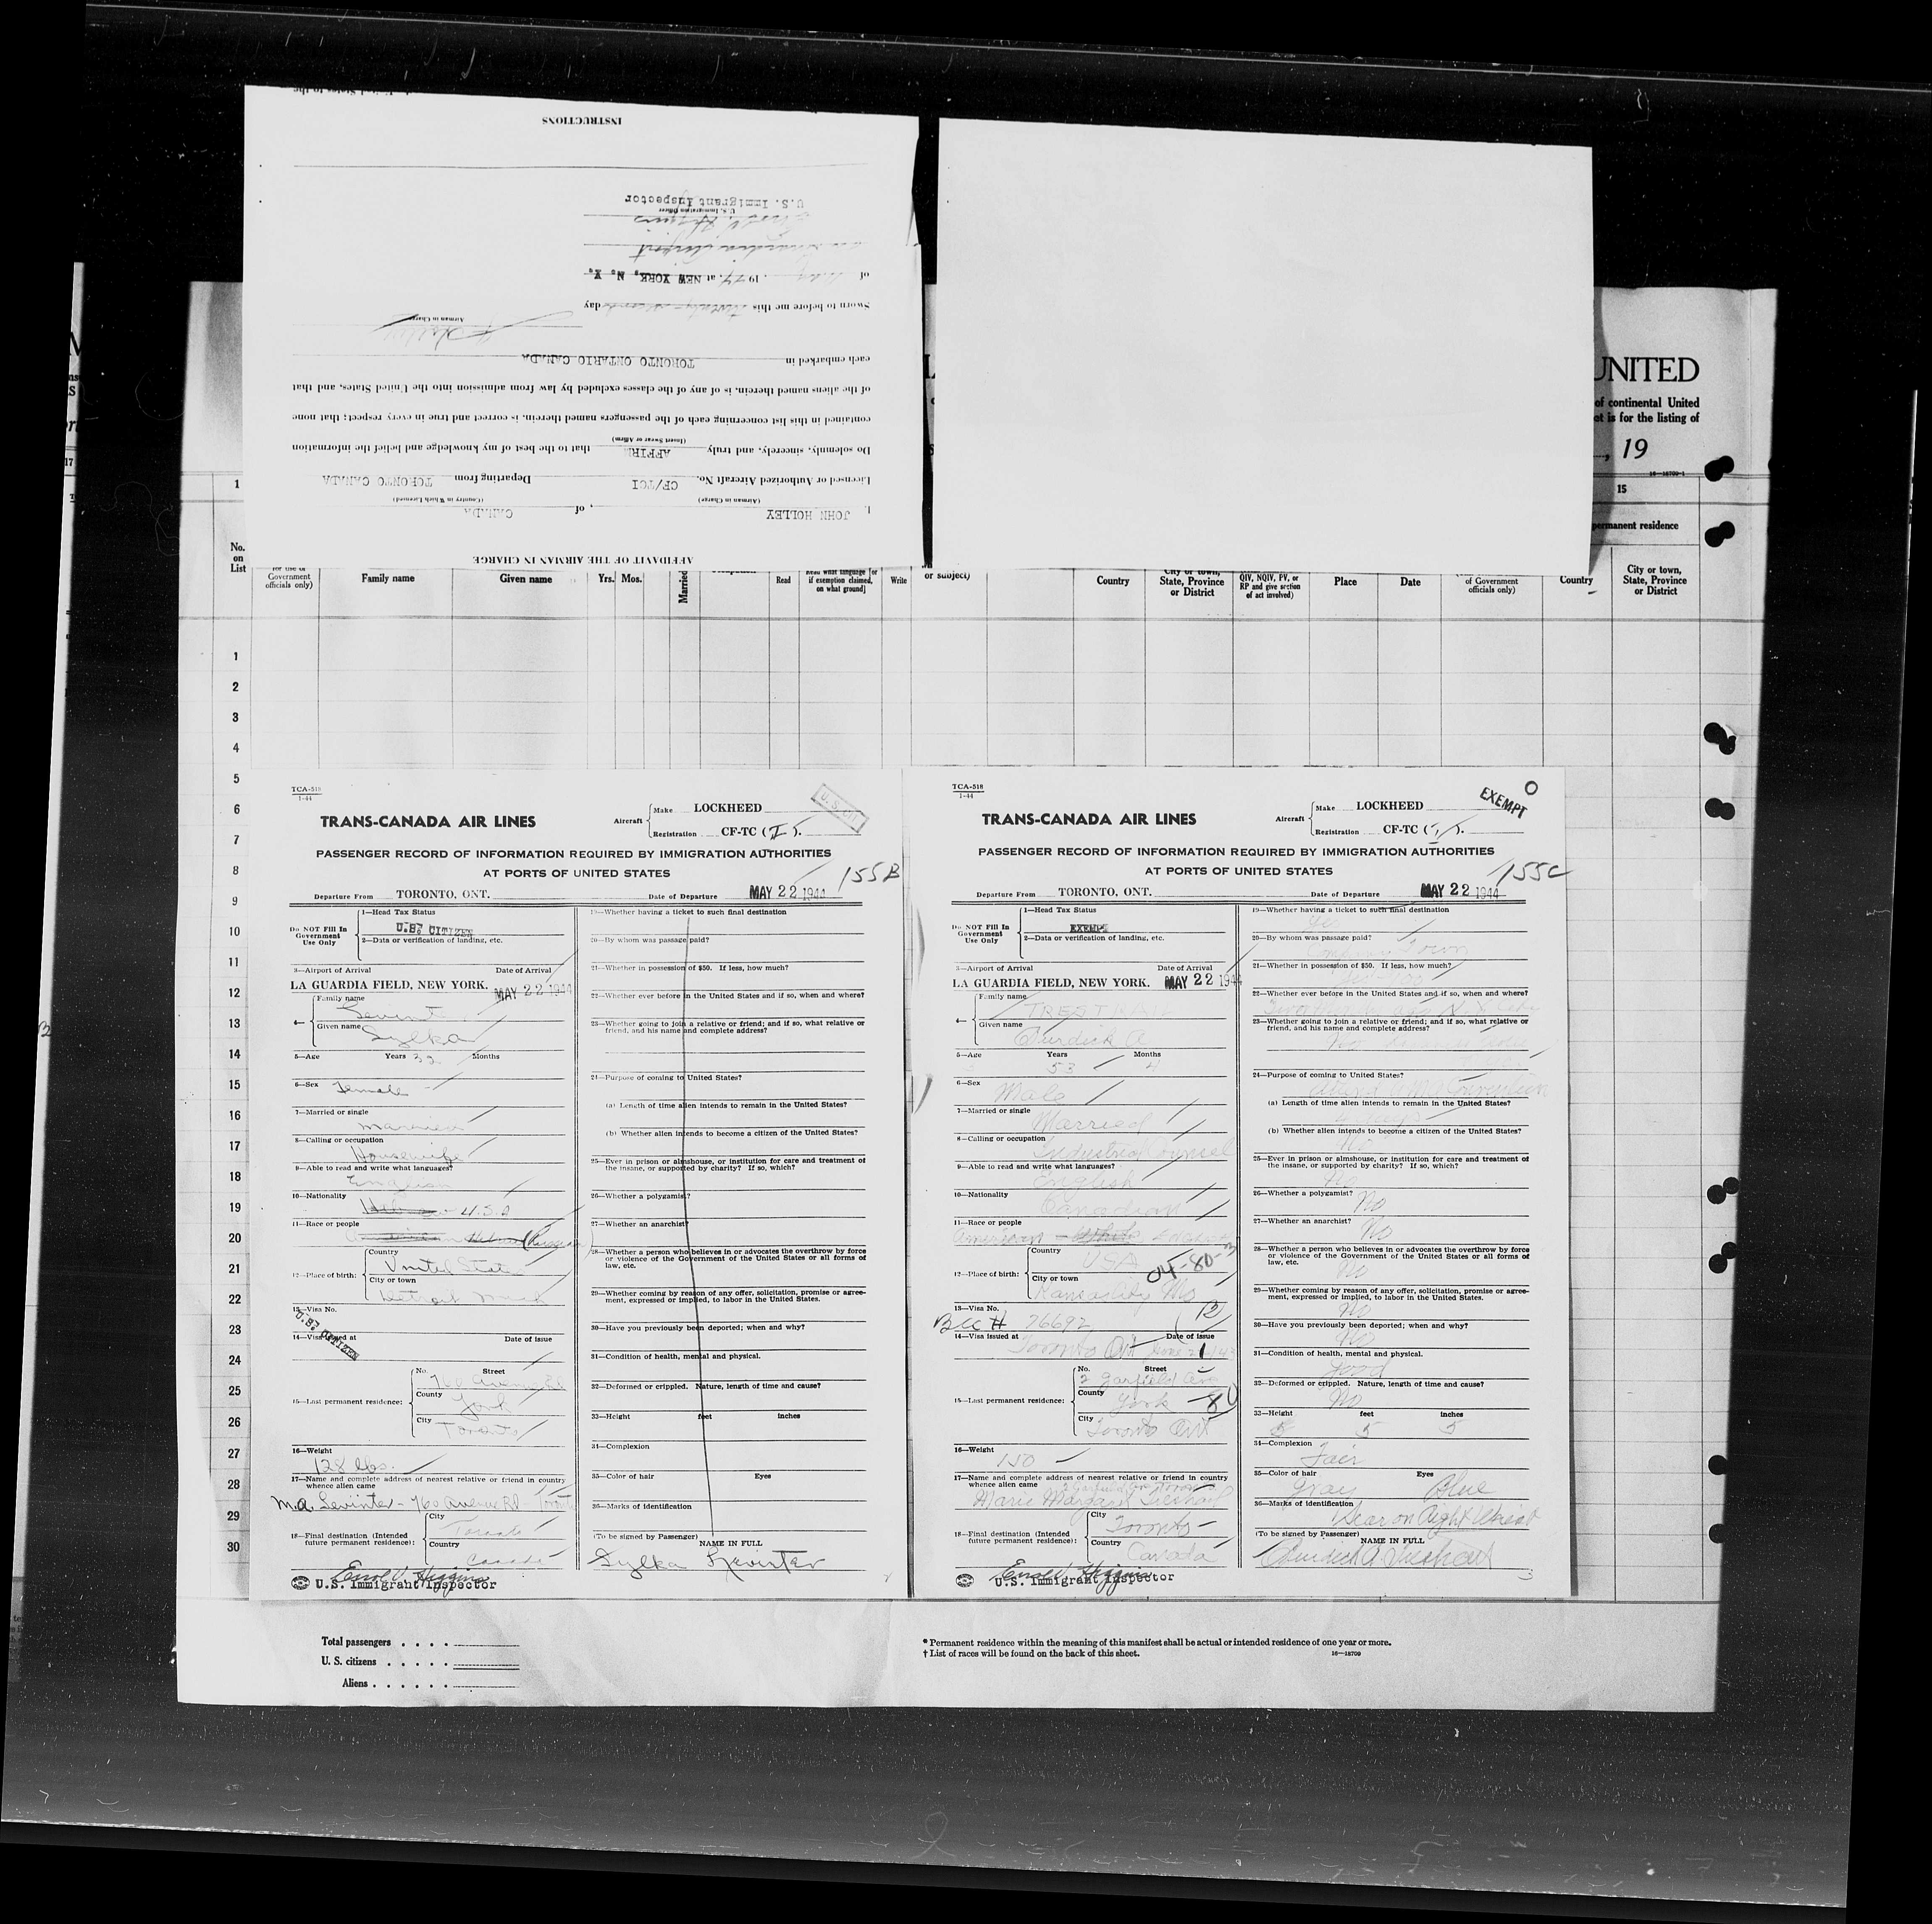 INSTRUCTIONS
U.S. Immigrant Inspector
U.S. Immigration Officer
of May, 1944, at NEW YORK, N. Y.
Sworn to before me this twenty-second day
Airman in Charge
each embarked in TORONTO ONTARIO CANADA
of the aliens named therein, is of any of the classes excluded by law from admission into the United States, and that
contained in this list concerning each of the passengers named therein, is correct and true in every respect; that none
(Insert Swear or Affirm)
Do solemnly, sincerely, and truly AFFIRM that to the best of my knowledge and belief the information
Licensed or Authorized Aircraft No. CF/TCI Departing from TORONTO CANADA
(Airman in Charge) (Country in Which Licensed)
I, JOHN HOLLEY, of CANADA
AFFIDAVIT OF THE AIRMAN IN CHARGE
UNITED
of continental United
is for the listing of
, 19
16—18709-1
1
15
permanent residence
No. on List
Government officials only)
Family name
Given name
Yrs. Mos.
Married
Read
if exemption claimed, on what ground]
Write
or subject)
Country
State, Province or District
QIV, NQIV, PV, or RP and give section of act involved)
Place
Date
of Government officials only)
Country
City or town, State, Province or District
1
2
3
4
5
6
7
8
9
10
11
12
13
14
15
16
17
18
19
20
21
22
23
24
25
26
27
28
29
30
TCA-518
1-44
TRANS-CANADA AIR LINES
Aircraft
Make LOCKHEED
Registration CF-TC (I).
U. S. CIT
PASSENGER RECORD OF INFORMATION REQUIRED BY IMMIGRATION AUTHORITIES
AT PORTS OF UNITED STATES
155B
Departure From TORONTO, ONT. Date of Departure MAY 22 1944
Do NOT Fill In Government Use Only
1—Head Tax Status
U.S. CITIZEN
2—Data or verification of landing, etc.
3—Airport of Arrival Date of Arrival
LA GUARDIA FIELD, NEW YORK. MAY 22 1944
4—
Family name
Levinter
Given name
Sylka
5—Age Years 32 Months
6—Sex Female
7—Married or single
Married
8—Calling or occupation
Housewife
9—Able to read and write what languages?
English
10—Nationality
U.S.A
11—Race or people
Hebrew (Russian)
12—Place of birth:
Country
United States
City or town
Detroit Mich
13—Visa No.
U.S. CITIZEN
14—Visa issued at Date of issue
15—Last permanent residence:
No. Street
760 Avenue Rd
County
York
City
Toronto
16—Weight
128 lbs.
17—Name and complete address of nearest relative or friend in country whence alien came
M.A. Levinter - 760 Avenue Rd - Toronto
18—Final destination (Intended future permanent residence):
City
Toronto
Country
Canada
Errol V. Higgins
U.S. Immigrant Inspector
19—Whether having a ticket to such final destination
20—By whom was passage paid?
21—Whether in possession of $50. If less, how much?
22—Whether ever before in the United States and if so, when and where?
23—Whether going to join a relative or friend; and if so, what relative or friend, and his name and complete address?
24—Purpose of coming to United States?
(a) Length of time alien intends to remain in the United States?
(b) Whether alien intends to become a citizen of the United States?
25—Ever in prison or almshouse, or institution for care and treatment of the insane, or supported by charity? If so, which?
26—Whether a polygamist?
27—Whether an anarchist?
28—Whether a person who believes in or advocates the overthrow by force or violence of the Government of the United States or all forms of law, etc.
29—Whether coming by reason of any offer, solicitation, promise or agreement, expressed or implied, to labor in the United States.
30—Have you previously been deported; when and why?
31—Condition of health, mental and physical.
32—Deformed or crippled. Nature, length of time and cause?
33—Height feet inches
34—Complexion
35—Color of hair Eyes
36—Marks of identification
(To be signed by Passenger) NAME IN FULL
Sylka Levinter
TCA-518
1-44
TRANS-CANADA AIR LINES
Aircraft
Make LOCKHEED
Registration CF-TC (I).
EXEMPT
PASSENGER RECORD OF INFORMATION REQUIRED BY IMMIGRATION AUTHORITIES
AT PORTS OF UNITED STATES
155C
Departure From TORONTO, ONT. Date of Departure MAY 22 1944
Do NOT Fill In Government Use Only
1—Head Tax Status
EXEMPT
2—Data or verification of landing, etc.
3—Airport of Arrival Date of Arrival
LA GUARDIA FIELD, NEW YORK. MAY 22 1944
4—
Family name
TRESTRAIL
Given name
Burdick A
5—Age Years Months
53 4
6—Sex
Male
7—Married or single
Married
8—Calling or occupation
Industrial Counsel
9—Able to read and write what languages?
English
10—Nationality
Canadian
11—Race or people
American - White English
12—Place of birth:
Country
USA
04-80-3
City or town
Kansas City Mo
13—Visa No.
BCC # 76692 (12)
14—Visa issued at Date of issue
Toronto Ont
15—Last permanent residence:
No. Street
2 Garfield Ave
County
York
80
City
Toronto Ont
16—Weight
150
17—Name and complete address of nearest relative or friend in country whence alien came
Marie Margaret Trestrail
18—Final destination (Intended future permanent residence):
City
Toronto
Country
Canada
Errol V. Higgins
U.S. Immigrant Inspector
19—Whether having a ticket to such final destination
Yes
20—By whom was passage paid?
21—Whether in possession of $50. If less, how much?
22—Whether ever before in the United States and if so, when and where?
23—Whether going to join a relative or friend; and if so, what relative or friend, and his name and complete address?
No
24—Purpose of coming to United States?
Convention
(a) Length of time alien intends to remain in the United States?
(b) Whether alien intends to become a citizen of the United States?
No
25—Ever in prison or almshouse, or institution for care and treatment of the insane, or supported by charity? If so, which?
No
26—Whether a polygamist? No
27—Whether an anarchist? No
28—Whether a person who believes in or advocates the overthrow by force or violence of the Government of the United States or all forms of law, etc.
No
29—Whether coming by reason of any offer, solicitation, promise or agreement, expressed or implied, to labor in the United States.
No
30—Have you previously been deported; when and why?
No
31—Condition of health, mental and physical.
Good
32—Deformed or crippled. Nature, length of time and cause?
No
33—Height feet inches
5 5
34—Complexion
Fair
35—Color of hair Eyes
Gray Blue
36—Marks of identification
Scar on Right Wrist
(To be signed by Passenger) NAME IN FULL
Burdick A. Trestrail
Total passengers . . . .
U. S. citizens . . . . .
Aliens . . . . . .
* Permanent residence within the meaning of this manifest shall be actual or intended residence of one year or more.
† List of races will be found on the back of this sheet.
16—18709